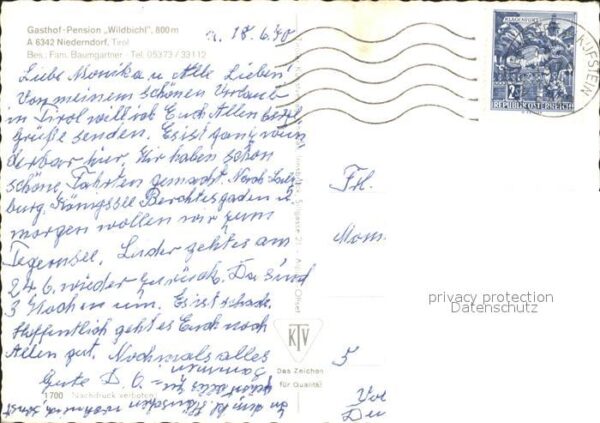 Gasthof-Pension „Wildbichl“, 800 m
A 6342 Niederndorf, Tirol
Bes.: Fam. Baumgartner · Tel. 05373 / 33112
18.6.70
Liebe Monika u. Alle Lieben!
Von meinem schönen Urlaub
in Tirol will ich Euch Allen herzl.
Grüße senden. Es ist ganz wun
derbar hier. Wir haben schon
schöne Fahrten gemacht. Nach Salz
burg, Königssee Berchtesgaden u.
morgen wollen wir zum
Tegernsee. Leider geht es am
24.6. wieder zurück. Da sind
3 Wochen um. Es ist schade.
Hoffentlich geht es Euch noch
Allen gut. Nochmals alles
Gute
1700 Nachdruck verboten
KTV
Das Zeichen
für Qualität!
KUFSTEIN
2 S
REPUBLIK ÖSTERREICH
Frl.
Mon
5
privacy protection
Datenschutz